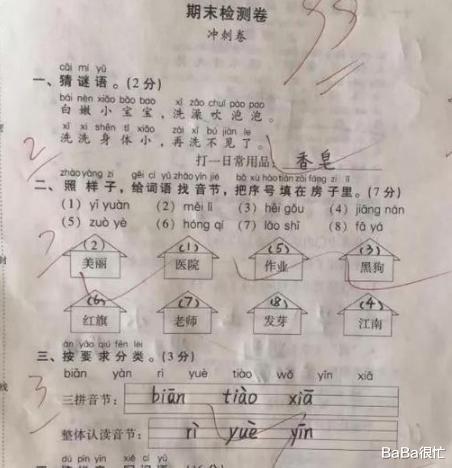 期末检测卷
冲刺卷
cāi mí yǔ
一、猜谜语。(2分)
bái nèn xiǎo bǎo bao xǐ zǎo chuī pào pao
白嫩小宝宝，洗澡吹泡泡。
xǐ xǐ shēn tǐ xiǎo zài xǐ bú jiàn le
洗洗身体小，再洗不见了。
打一日常用品：香皂
2
zhào yàng zi gěi cí yǔ zhǎo yīn jié bǎ xù hào tián zài fáng zi lǐ
二、照样子，给词语找音节，把序号填在房子里。(7分)
(1) yī yuàn (2) měi lì (3) hēi gǒu (4) jiāng nán
(5) zuò yè (6) hóng qí (7) lǎo shī (8) fā yá
(2) (1) (5) (3)
美丽 医院 作业 黑狗
(6) (7) (8) (4)
红旗 老师 发芽 江南
7
àn yāo qiú fēn lèi
三、按要求分类。(3分)
biān yàn rì yuè tiào wǒ yīn xiā
三拼音节：biān tiào xiā
3
整体认读音节：rì yuè yīn
BaBa很忙